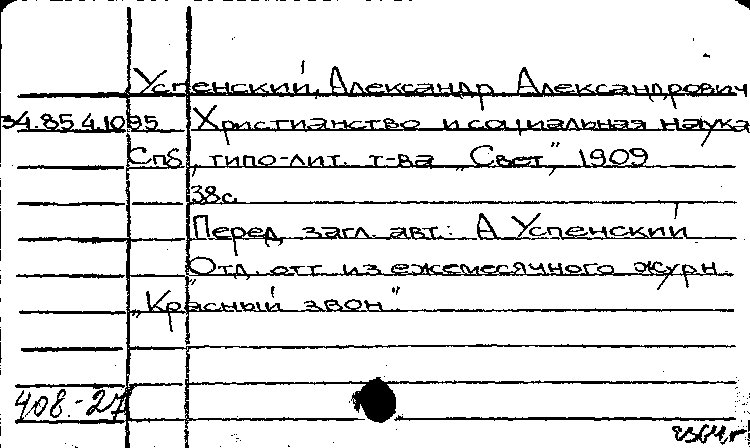 Успенский, Александр Александрович
34.85.4.1095 Христианство и социальная наука
Спб, типо-лит. т-ва „Свет", 1909
38с.
Перед загл. авт.: А Успенский
Отд. отт. из ежемесячного журн.
„Красный звон"
408.-27